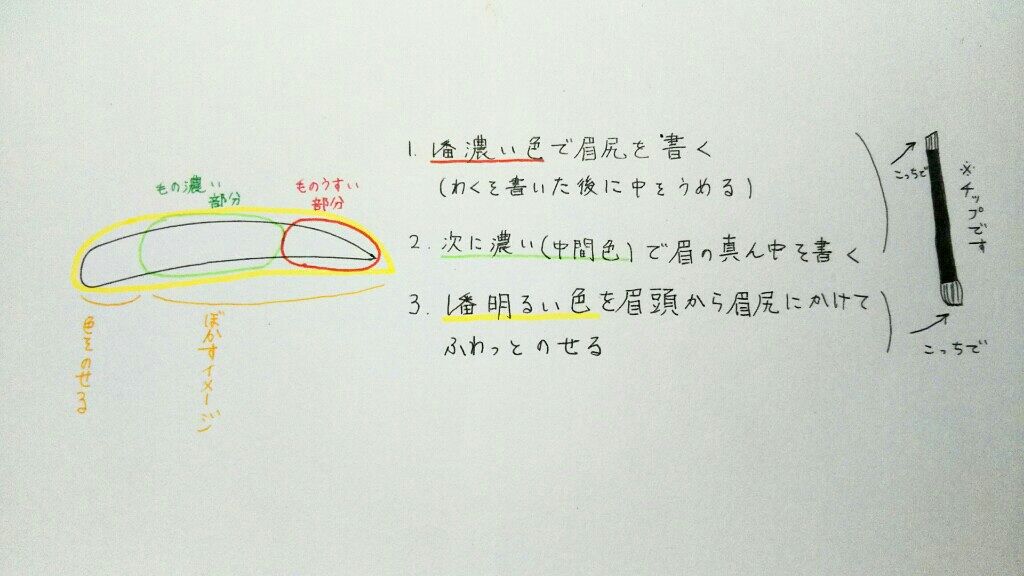 もの濃い
部分
ものうすい
部分
色をのせる
ぼかすイメージ
1. 1番濃い色で眉尻を書く
(わくを書いた後に中をうめる)
2. 次に濃い(中間色)で眉の真ん中を書く
3. 1番明るい色を眉頭から眉尻にかけて
ふわっとのせる
こっちで
※チップです
こっちで